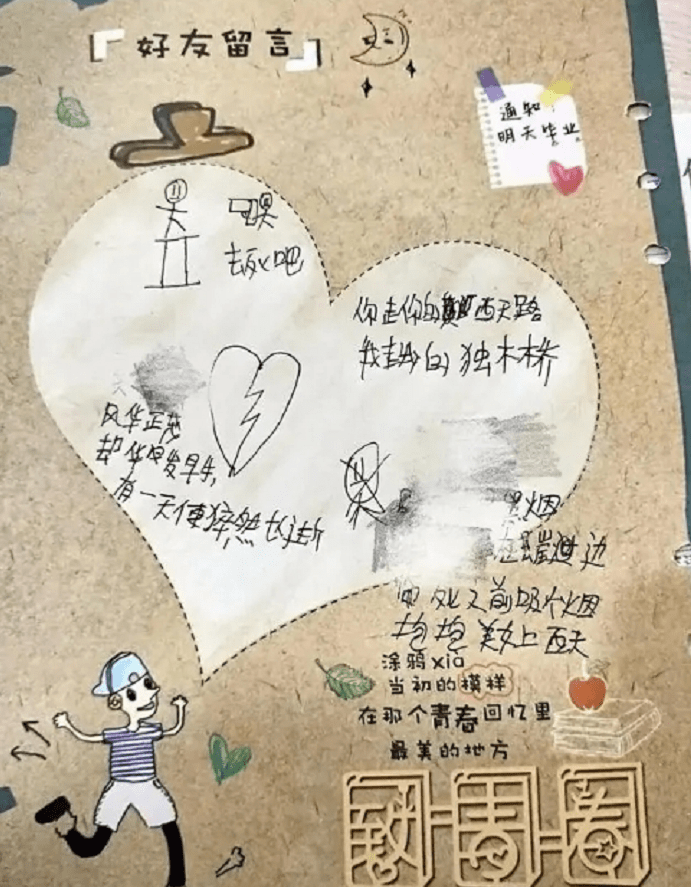 好友留言
通知
明天毕业
去死吧
你走你的西天路
我走的独木桥
风华正茂
却华发早生,
有一天便猝然长逝
烟
边
死之前吸个烟
抱抱美女上西天
涂鸦xia
当初的模样
在那个青春回忆里
最美的地方
致青春